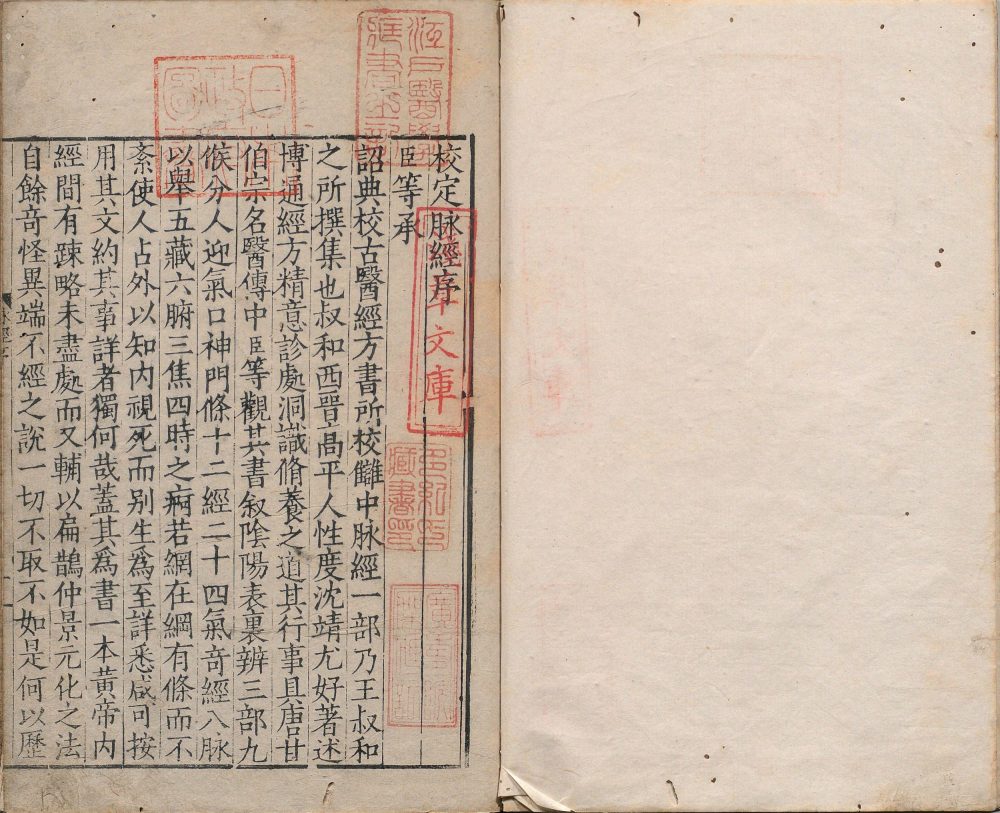 校定脉經序
臣等承
詔典校古醫經方書所校讎中脉經一部乃王叔和
之所撰集也叔和西晉高平人性度沈靖尤好著述
博通經方精意診處洞識脩養之道其行事具唐甘
伯宗名醫傳中臣等觀其書叙陰陽表裏辨三部九
候分人迎氣口神門條十二經二十四氣奇經八脉
以舉五藏六腑三焦四時之痾若網在綱有條而不
紊使人占外以知内視死而别生爲至詳悉咸可按
用其文約其事詳者獨何哉蓋其爲書一本黄帝内
經間有踈略未盡處而又輔以扁鵲仲景元化之法
自餘奇怪異端不經之説一切不取不如是何以歷
江戸醫學
藏書之記
日本
政府
圖書
文庫
藏書